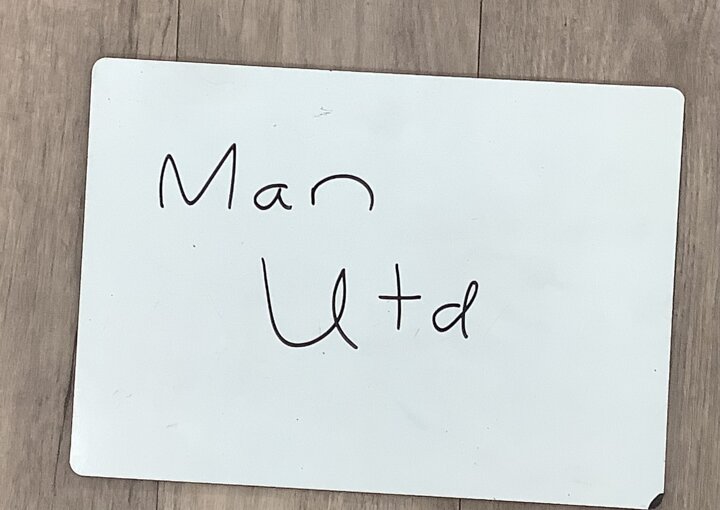 Man
Utd